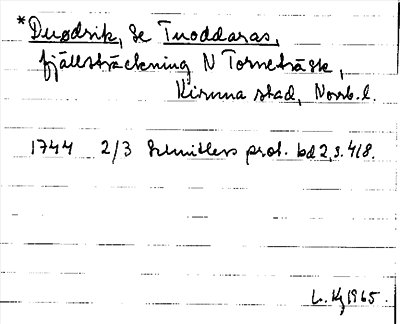 *Duødrik, Se Tuoddaras,
fjällsträckning N Torneträsk,
Kiruna stad, Norrb.l.
1744 2/3 Schnitlers prot. bd 2, s. 418.
1965.